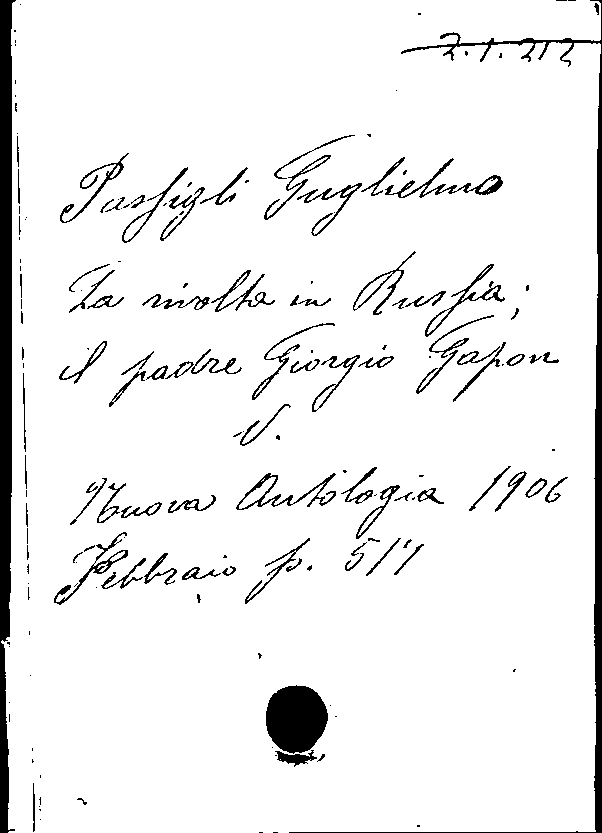 2.1.212
Passigli Guglielmo
La rivolta in Russia;
il padre Giorgio Gapon
V.
Nuova Antologia 1906
Febbraio p. 517